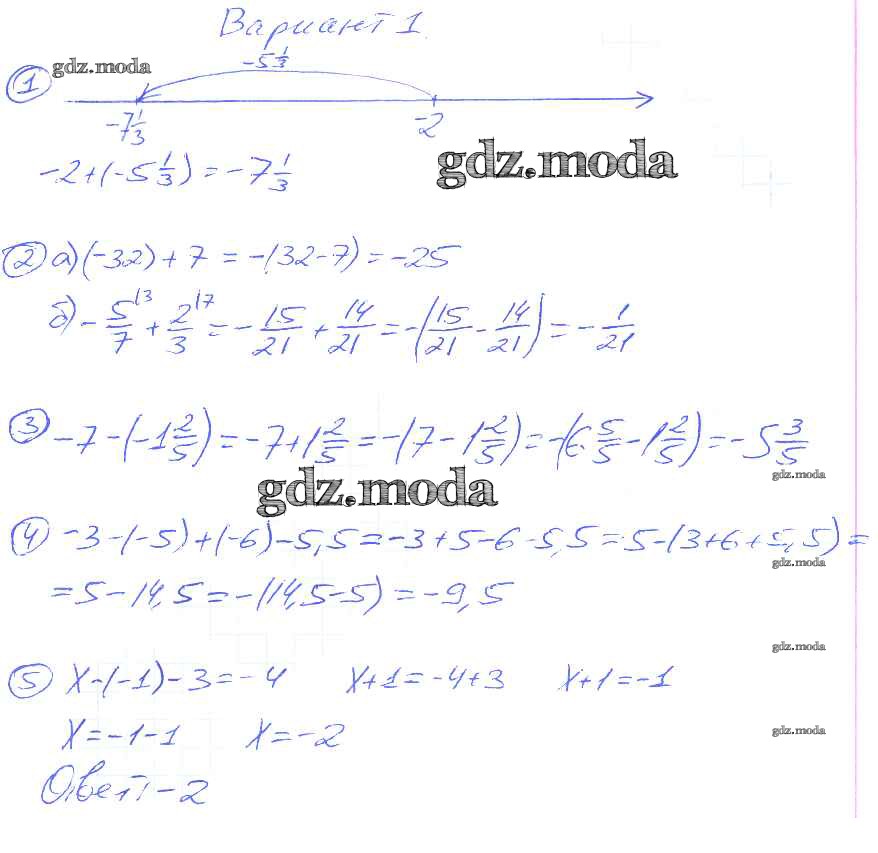 Вариант 1.
gdz.moda
-5 1/3
①
-7 1/3 -2
gdz.moda
-2+(-5 1/3)=-7 1/3
② а) (-32)+7=-(32-7)=-25
б) -5/7^\3 + 2/3^\7 = -15/21 + 14/21 = -(15/21 - 14/21) = -1/21
③ -7-(-1 2/5)=-7+1 2/5=-(7-1 2/5)=-(6 5/5-1 2/5)=-5 3/5
gdz.moda
gdz.moda
④ -3-(-5)+(-6)-5,5=-3+5-6-5,5=5-(3+6+5,5)=
gdz.moda
=5-14,5=-(14,5-5)=-9,5
gdz.moda
⑤ x-(-1)-3=-4 x+1=-4+3 x+1=-1
x=-1-1 x=-2
gdz.moda
Ответ: -2